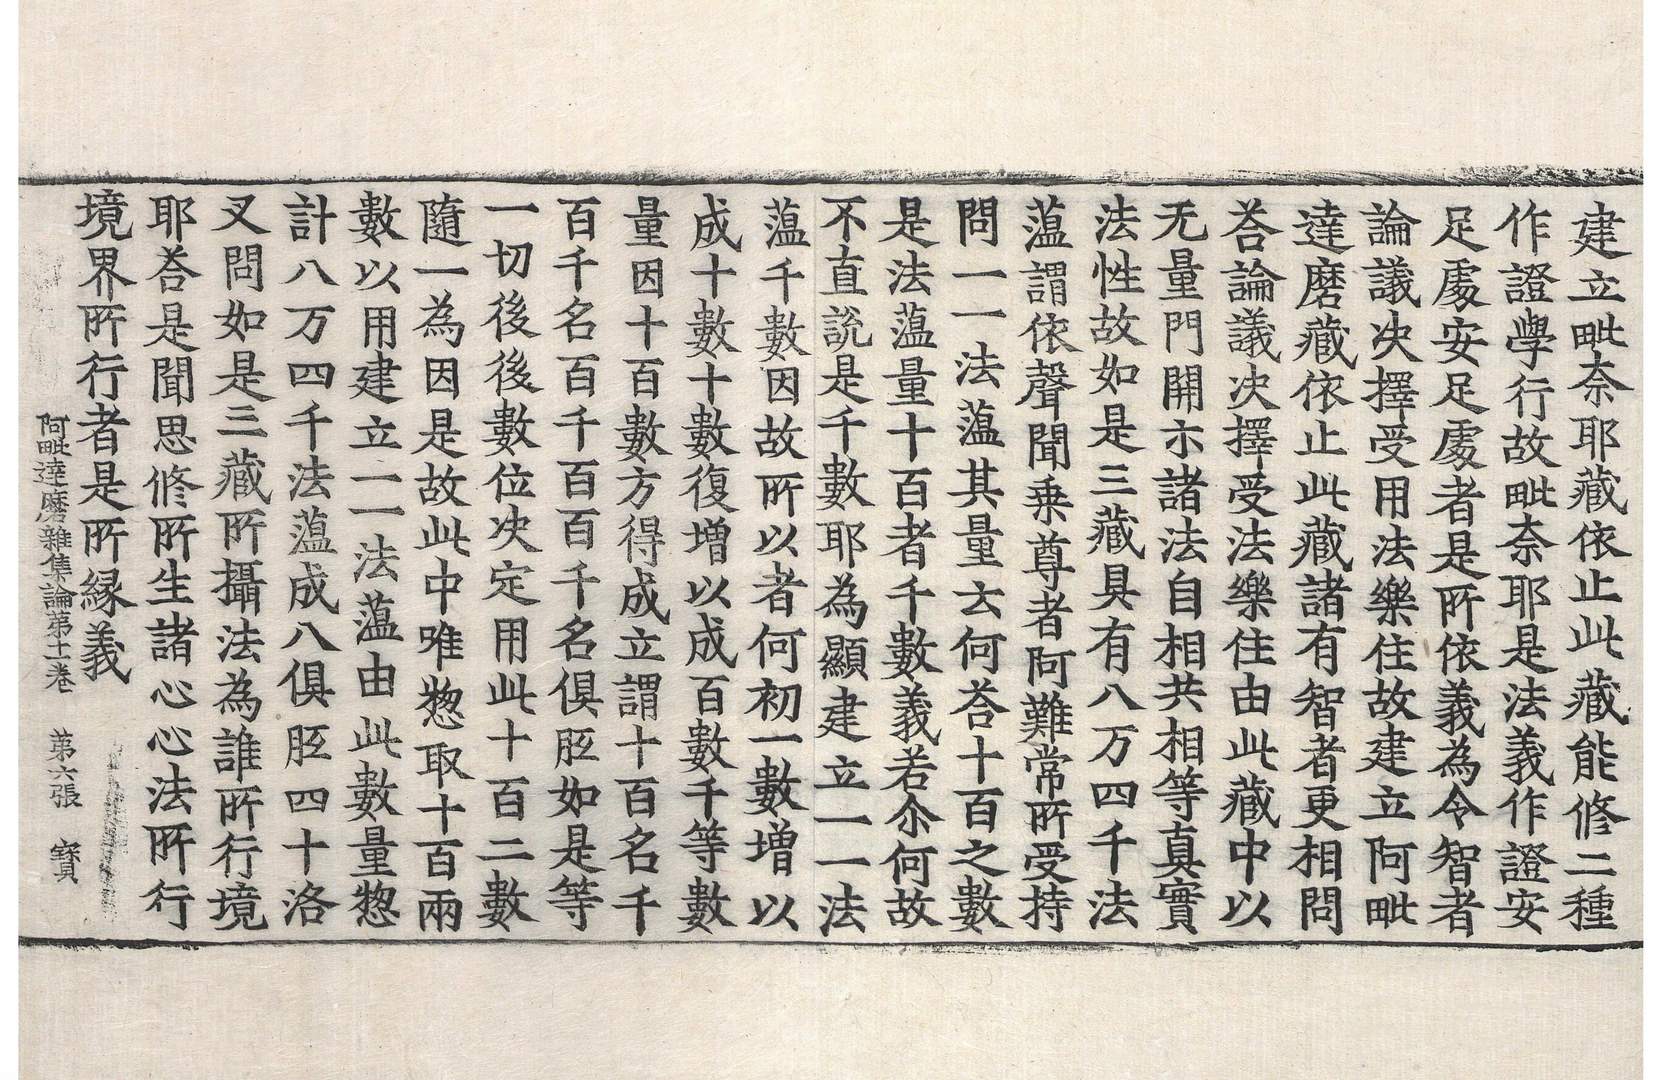 建立毗奈耶藏依止此藏能修二種
作證學行故毗奈耶是法義作證安
足處安足處者是所依義為令智者
論議決擇受用法樂住故建立阿毗
達磨藏依止此藏諸有智者更相問
荅論議決擇受法樂住由此藏中以
无量門開示諸法自相共相等真實
法性故如是三藏具有八万四千法
蘊謂依聲聞乗尊者阿難常所受持
問一一法蘊其量云何荅十百之數
是法蘊量十百者千數義若尒何故
不直說是千數耶為顯建立一一法
蘊千數因故所以者何初一數增以
成十數十數復增以成百數千等數
量因十百數方得成立謂十百名千
百千名百千百百千名俱胝如是等
一切後後數位決定用此十百二數
隨一為因是故此中唯惣取十百兩
數以用建立一一法蘊由此數量惣
計八万四千法蘊成八俱胝四十洛
叉問如是三藏所攝法為誰所行境
耶荅是聞思修所生諸心心法所行
境界所行者是所緣義
阿毗達磨雜集論第十一卷　第六張　寳